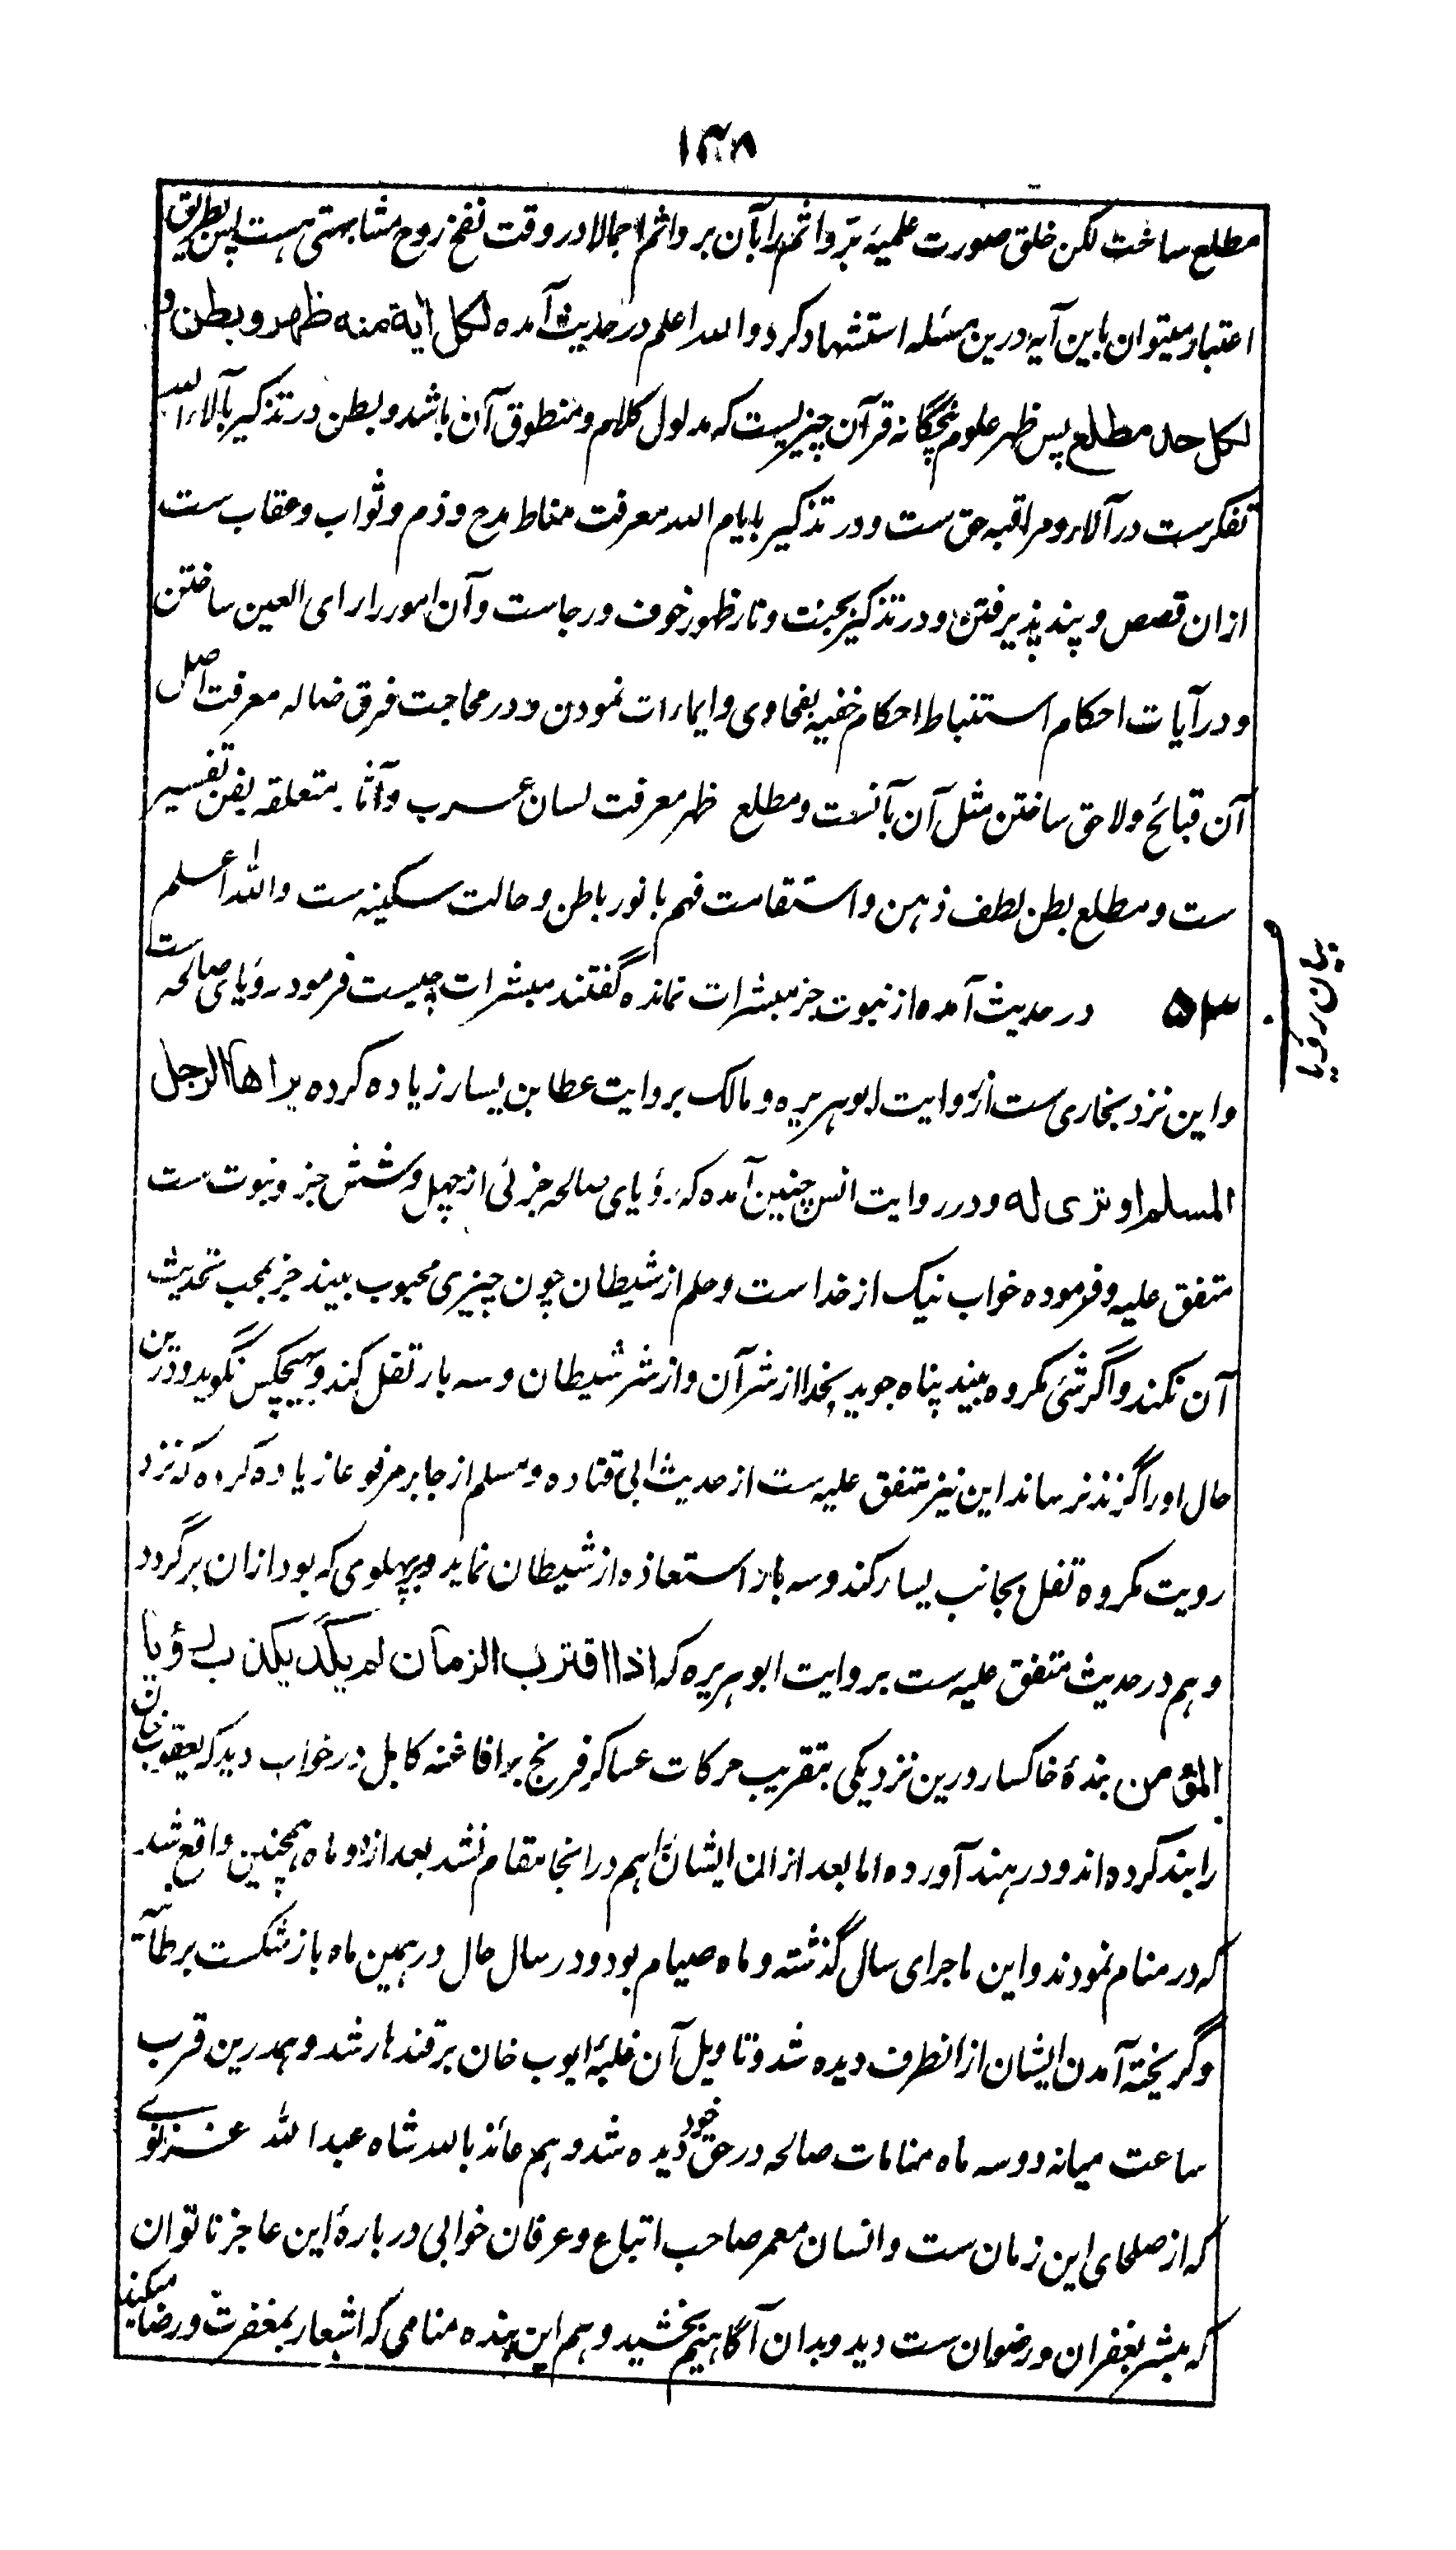 ۱۴۸
مطلع ساخت لکن خلق صورت علمیهٔ برّ و اثم را بآن بر و اثم اجمالا در وقت نفخ روح مشابهتی هست پس بطریق
اعتبار میتوان باین آیه درین مسئله استشهاد کرد والله اعلم در حدیث آمده لکل آیة منه ظهر و بطن و
لکل حد مطلع پس ظهر علوم پنجگانه قرآن چیزیست که مدلول کلام و منطوق آن باشد و بطن در تذکیر بآلاء الله
تفکرست در آلاء و مراقبه حق ست و در تذکیر بایام الله معرفت مناط مدح و ذم و ثواب و عقاب ست
ازان قصص و پند پذیرفتن و در تذکیر بجنت و نار ظهور خوف و رجاست و آن امور را رای العین ساختن
و در آیات احکام استنباط احکام خفیه بفحاوی و ایماءات نمودن و در محاجت فرق ضاله معرفت اصل
آن قبائح و لاحق ساختن مثل آن بآنست و مطلع ظهر معرفت لسان عرب و آثار متعلقه بفن تفسیر
ست و مطلع بطن لطف ذهن و استقامت فهم با نور باطن و حالت سکینه ست والله اعلم
۵۳ در حدیث آمده از نبوت جز مبشرات نمانده گفتند مبشرات چیست فرمود رؤیای صالحه ست
بیان رؤیا
و این نزد بخاری ست از روایت ابو هریره و مالک بروایت عطا بن یسار زیاده کرده یراها الرجل
المسلم او تری له و در روایت انس چنین آمده که رؤیای صالحه جزئی از چهل و شش جزو نبوت ست
متفق علیه و فرموده خواب نیک از خدا ست و حلم از شیطان چون چیزی محبوب بیند جز بمحب تحدیث
آن نکند و اگر شئ مکروه بیند پناه جوید بخدا از شر آن و از شر شیطان و سه بار تفل کند و بهیچکس نگوید و درین
حال او را گزند نرساند این نیز متفق علیه ست از حدیث ابی قتاده و مسلم از جابر مرفوعا زیاده کرده که نزد
رویت مکروه تفل بجانب یسار کند و سه بار استعاذه از شیطان نماید و بر پهلوی که بود ازان برگردد
و هم در حدیث متفق علیه ست بروایت ابو هریره که اذا اقترب الزمان لم یکد یکذب رؤیا
المؤمن بندهٔ خاکسار درین نزدیکی بتقریب حرکات عساکر فرنج بر افاغنه کابل در خواب دید که یعقوب خان
را بند کرده اند و در هند آورده اما بعد ازان ایشان را هم در انجا مقام نشد بعد از دو ماه همچنین واقع شد
که در منام نمودند و این ماجرای سال گذشته و ماه صیام بود و در سال حال در همین ماه باز شکست برطانیه
و گریخته آمدن ایشان از انطرف دیده شد و تاویل آن غلبهٔ ایوب خان بر قندهار شد و همدرین قرب
ساعت میانه دو سه ماه منامات صالحه در حق خود دیده شد و هم عائذ بالله شاه عبد الله غزنوی
که از صلحای این زمان ست و انسان معمر صاحب اتباع و عرفان خوابی دربارهٔ این عاجز ناتوان
که مبشر بغفران و رضوان ست دید و بدان آگاهیم بخشید و هم این بنده منامی که اشعار بمغفرت و رضا میکند